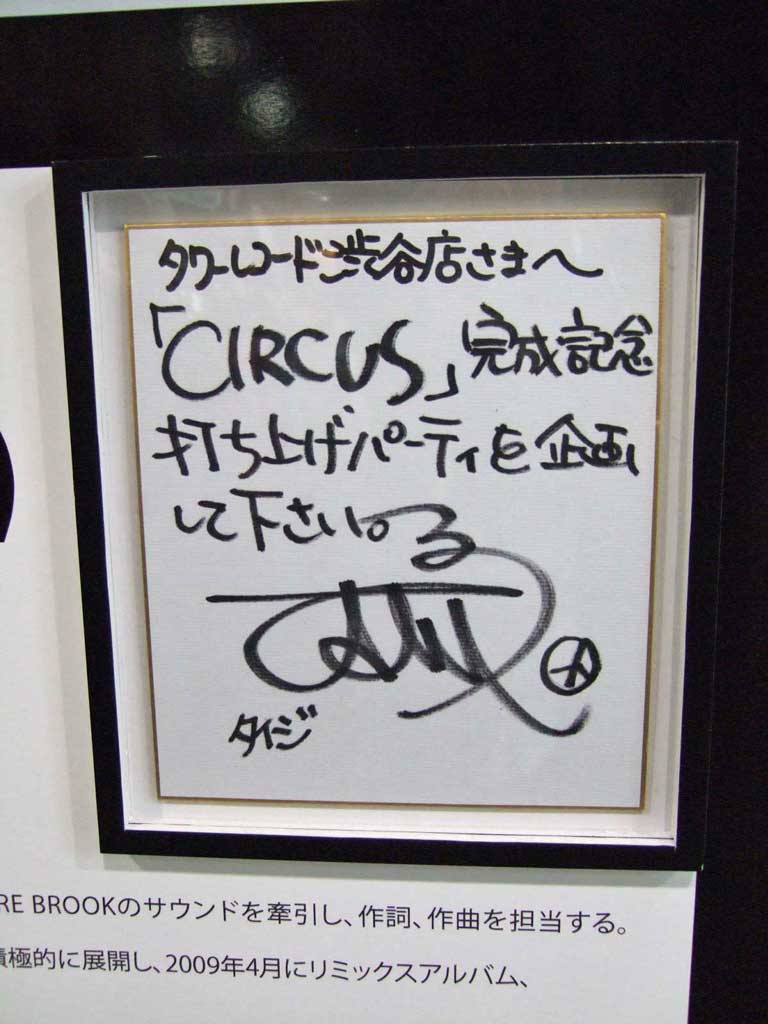 タワーレコード渋谷店さまへ
「CIRCUS」完成記念
打ち上げパーティを企画
して下さい。
タイジ
RE BROOKのサウンドを牽引し、作詞、作曲を担当する。
極的に展開し、2009年4月にリミックスアルバム、